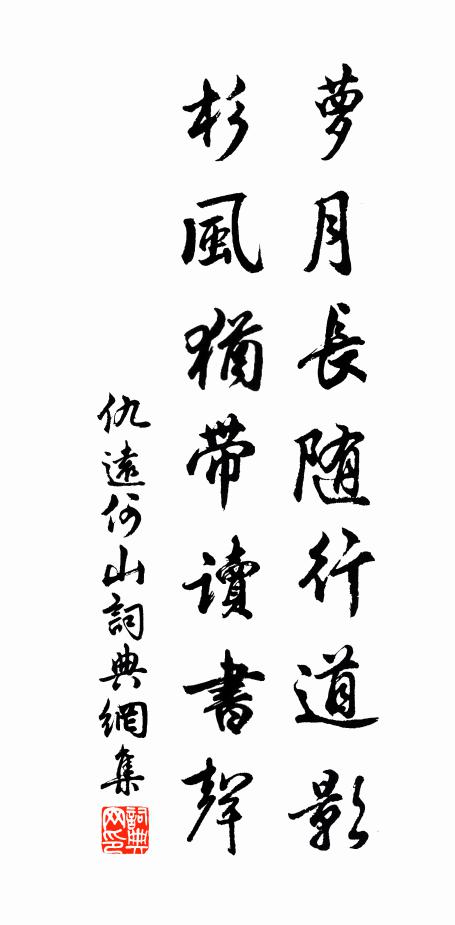 萝月長随行道影
杉風猶带读書聲
仇遠何山詞典網集
詞典网印